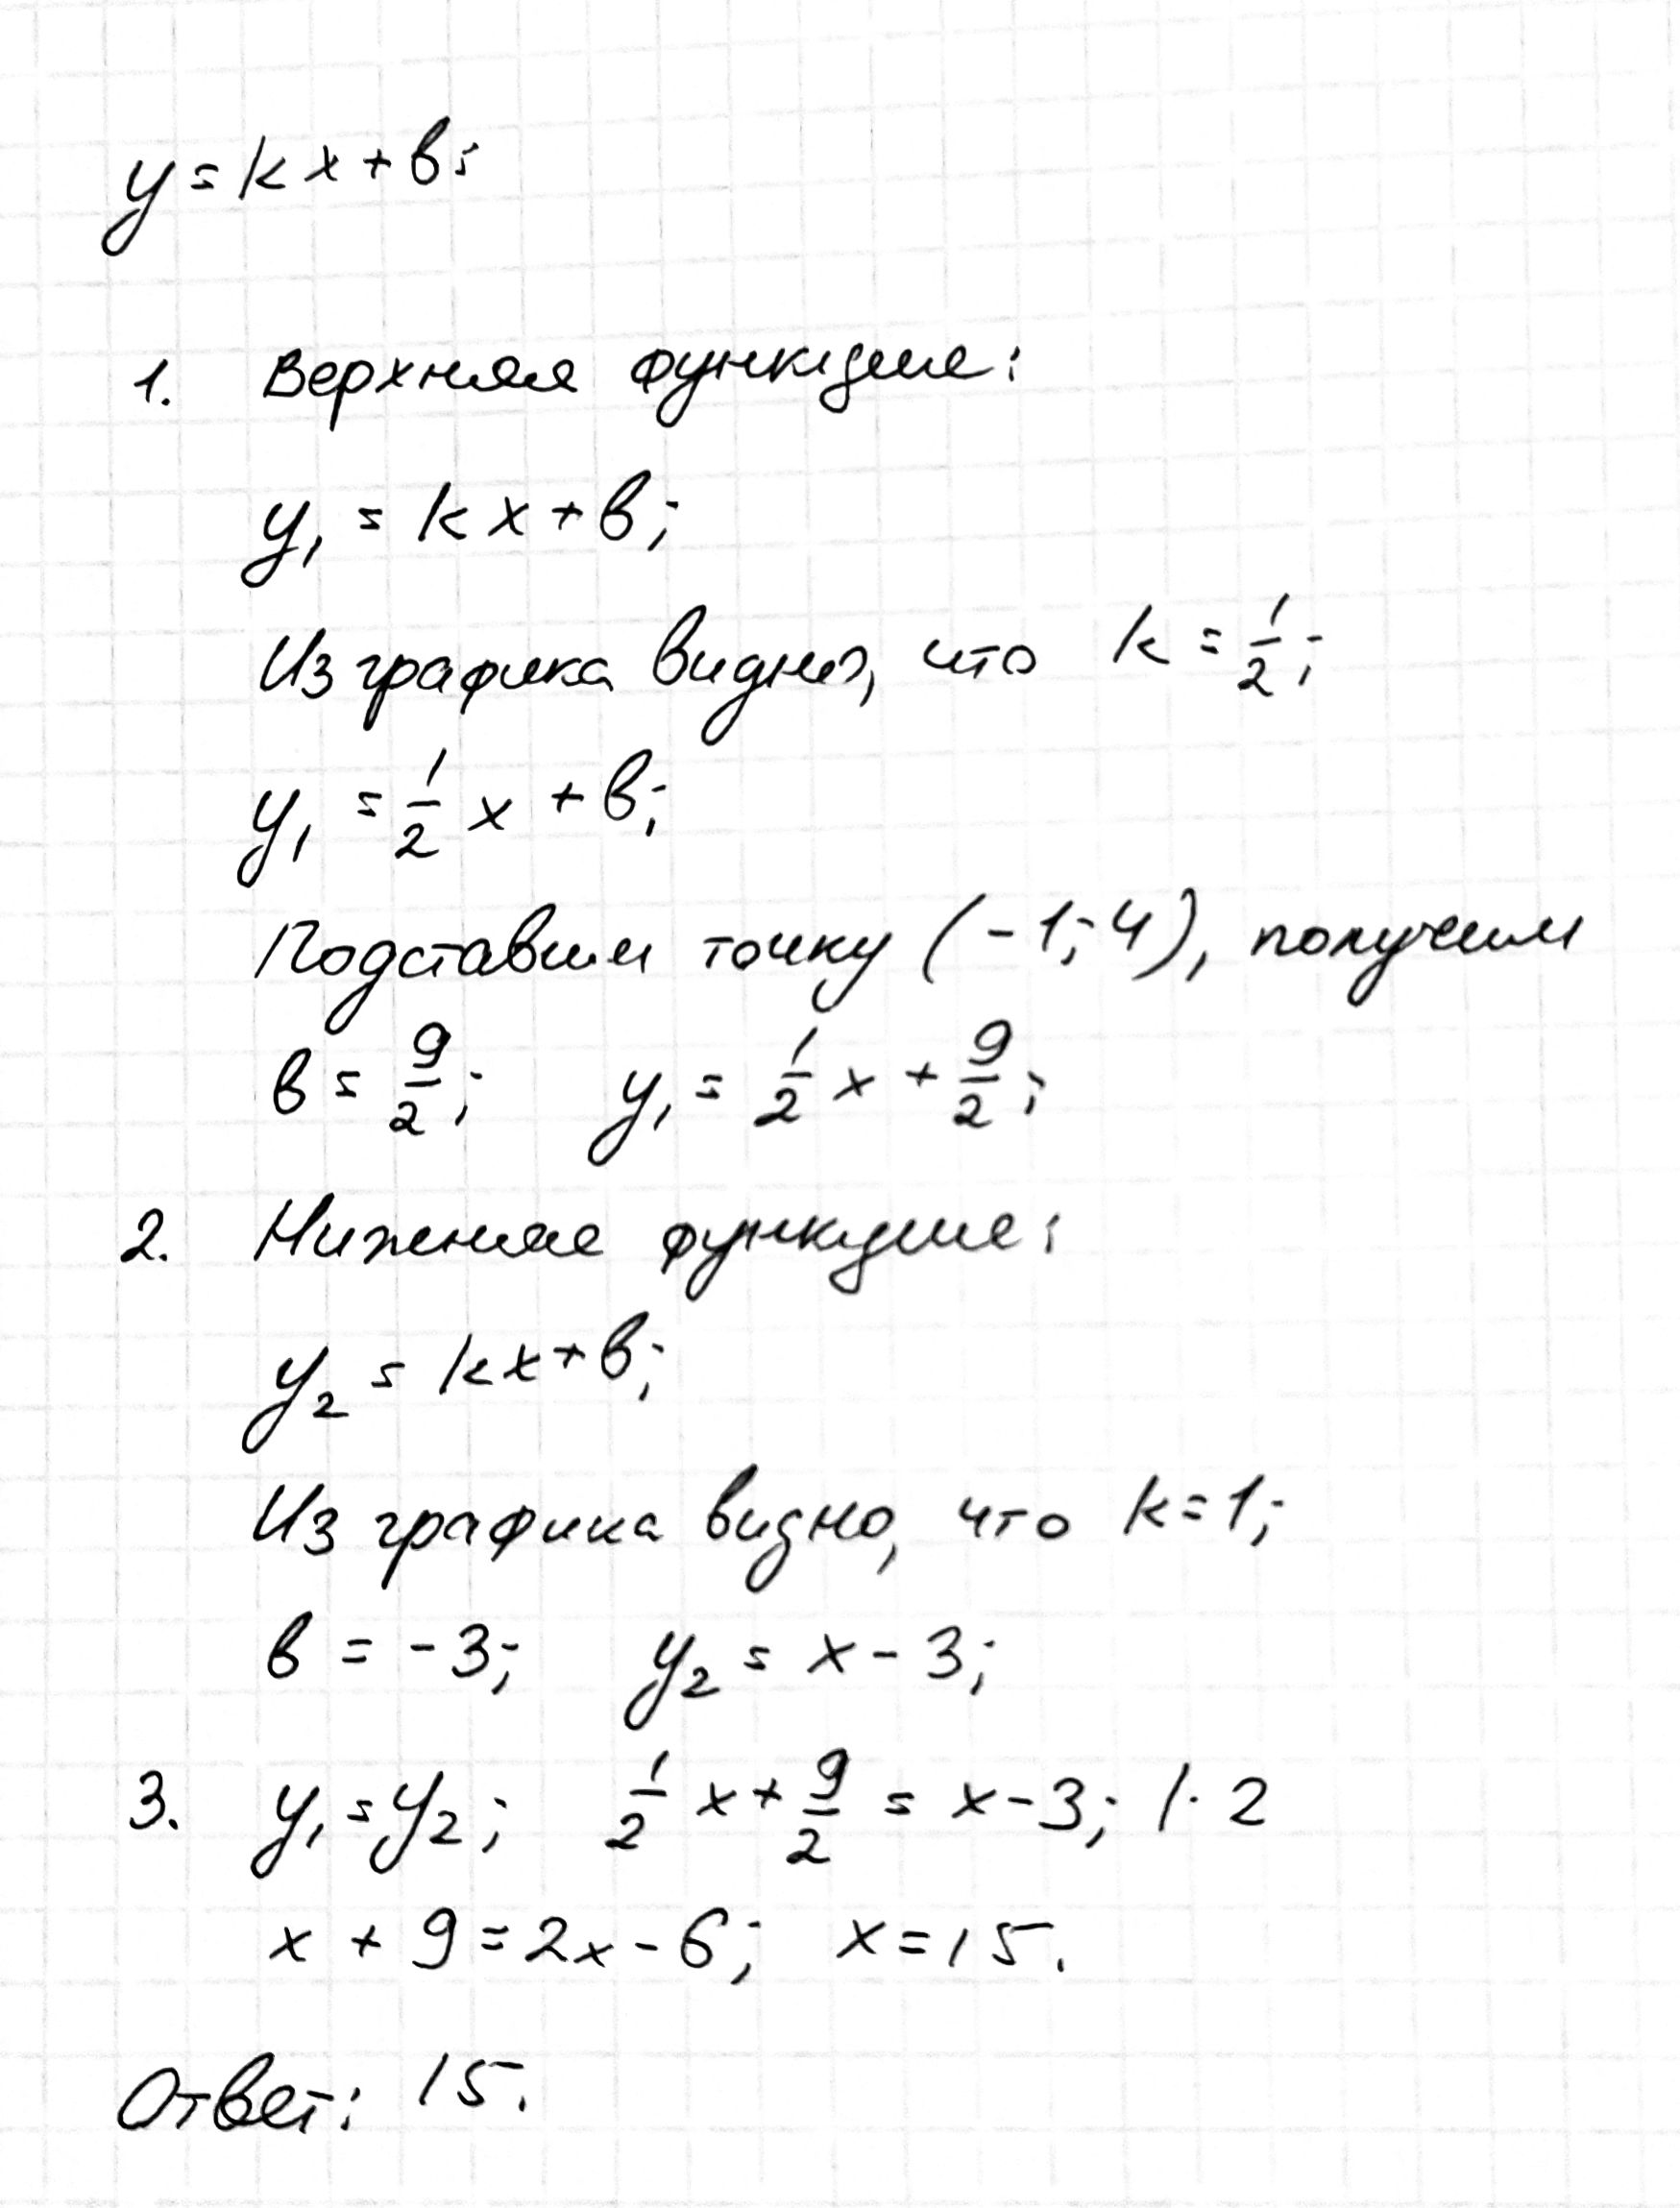 y = kx + b:
1. Верхняя функция:
y₁ = kx + b;
Из графика видно, что k = 1/2;
y₁ = 1/2 x + b;
Подставим точку (-1; 4), получим
b = 9/2; y₁ = 1/2 x + 9/2;
2. Нижняя функция:
y₂ = kx + b;
Из графика видно, что k = 1;
b = -3; y₂ = x - 3;
3. y₁ = y₂; 1/2 x + 9/2 = x - 3; | · 2
x + 9 = 2x - 6; x = 15.
Ответ: 15.